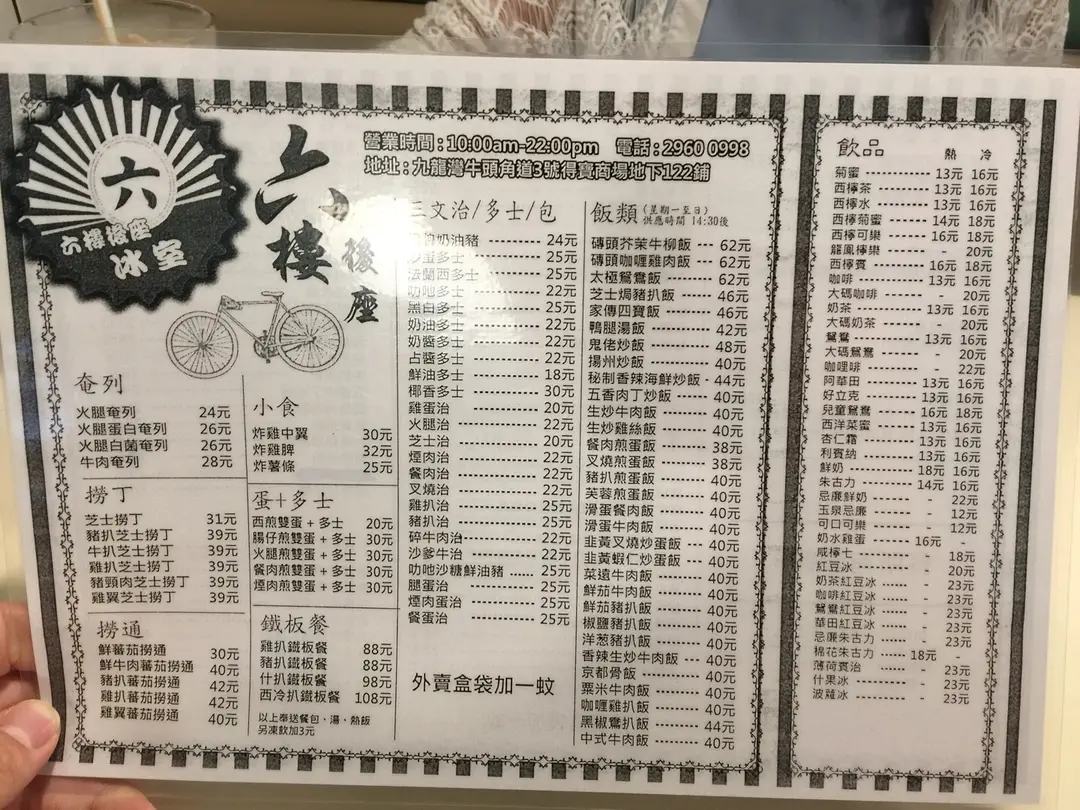 六
六樓後座
冰室
六樓後座
營業時間:10:00am-22:00pm 電話:2960 0998
地址:九龍灣牛頭角道3號得寶商場地下122鋪
奄列
火腿奄列 24元
火腿蛋白奄列 26元
火腿白菌奄列 26元
牛肉奄列 28元
撈丁
芝士撈丁 31元
豬扒芝士撈丁 39元
牛扒芝士撈丁 39元
雞扒芝士撈丁 39元
豬頸肉芝士撈丁 39元
雞翼芝士撈丁 39元
撈通
鮮蕃茄撈通 30元
鮮牛肉蕃茄撈通 40元
豬扒蕃茄撈通 42元
雞扒蕃茄撈通 42元
雞翼蕃茄撈通 40元
小食
炸雞中翼 30元
炸雞脾 32元
炸薯條 25元
蛋+多士
西煎雙蛋+多士 20元
腸仔煎雙蛋+多士 30元
火腿煎雙蛋+多士 30元
餐肉煎雙蛋+多士 30元
煙肉煎雙蛋+多士 30元
鐵板餐
雞扒鐵板餐 88元
豬扒鐵板餐 88元
什扒鐵板餐 98元
西冷扒鐵板餐 108元
以上奉送餐包、湯、熱飯
另凍飲加3元
三文治/多士/包
奶油豬 24元
蛋多士 25元
法蘭西多士 25元
叻吔多士 22元
黑白多士 25元
奶油多士 22元
奶醬多士 22元
占醬多士 22元
鮮油多士 18元
椰香多士 30元
雞蛋治 20元
火腿治 22元
芝士治 20元
煙肉治 22元
餐肉治 22元
叉燒治 22元
雞扒治 22元
豬扒治 22元
碎牛肉治 22元
沙爹牛治 22元
叻吔沙糖鮮油豬 25元
腿蛋治 25元
煙肉蛋治 25元
餐蛋治 25元
外賣盒袋加一蚊
飯類 (星期一至日)
供應時間 14:30後
磚頭芥茉牛柳飯 62元
磚頭咖喱雞肉飯 62元
太極鴛鴦飯 62元
芝士焗豬扒飯 46元
家傳四寶飯 46元
鴨腿湯飯 42元
鬼佬炒飯 48元
揚州炒飯 40元
秘制香辣海鮮炒飯 44元
五香肉丁炒飯 40元
生炒牛肉飯 40元
生炒雞絲飯 40元
餐肉煎蛋飯 38元
叉燒煎蛋飯 38元
豬扒煎蛋飯 40元
芙蓉煎蛋飯 40元
滑蛋餐肉飯 40元
滑蛋牛肉飯 40元
韭黃叉燒炒蛋飯 40元
韭黃蝦仁炒蛋飯 40元
菜遠牛肉飯 40元
鮮茄牛肉飯 40元
鮮茄豬扒飯 40元
椒鹽豬扒飯 40元
洋葱豬扒飯 40元
香辣生炒牛肉飯 40元
京都骨飯 40元
粟米牛肉飯 40元
咖喱雞扒飯 40元
黑椒雞扒飯 44元
中式牛肉飯 40元
飲品 熱 冷
菊蜜 13元 16元
西檸茶 13元 16元
西檸水 13元 16元
西檸菊蜜 14元 18元
西檸可樂 16元 18元
龍鳳檸樂 - 20元
西檸賓 16元 18元
咖啡 13元 16元
大碼咖啡 - 20元
奶茶 13元 16元
大碼奶茶 - 20元
鴛鴦 13元 16元
大碼鴛鴦 - 20元
咖哩啡 - 22元
阿華田 13元 16元
好立克 13元 16元
兒童鴛鴦 16元 18元
西洋菜蜜 13元 16元
杏仁霜 13元 16元
利賓納 13元 16元
鮮奶 18元 16元
朱古力 14元 16元
忌廉鮮奶 - 22元
玉泉忌廉 - 12元
可口可樂 - 12元
奶水雞蛋 16元 -
咸檸七 - 18元
紅豆冰 - 20元
奶茶紅豆冰 - 23元
咖啡紅豆冰 - 23元
鴛鴦紅豆冰 - 23元
華田紅豆冰 - 23元
忌廉朱古力 - 23元
棉花朱古力 18元 -
薄荷賓治 - 23元
什果冰 - 23元
波蘿冰 - 23元